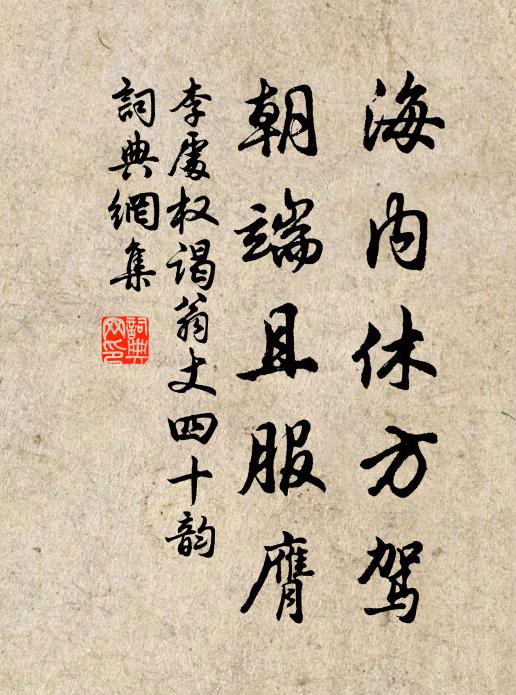 海内休方驾
朝端且服膺
李處权谒翁丈四十韵
詞典網集
詞典網印